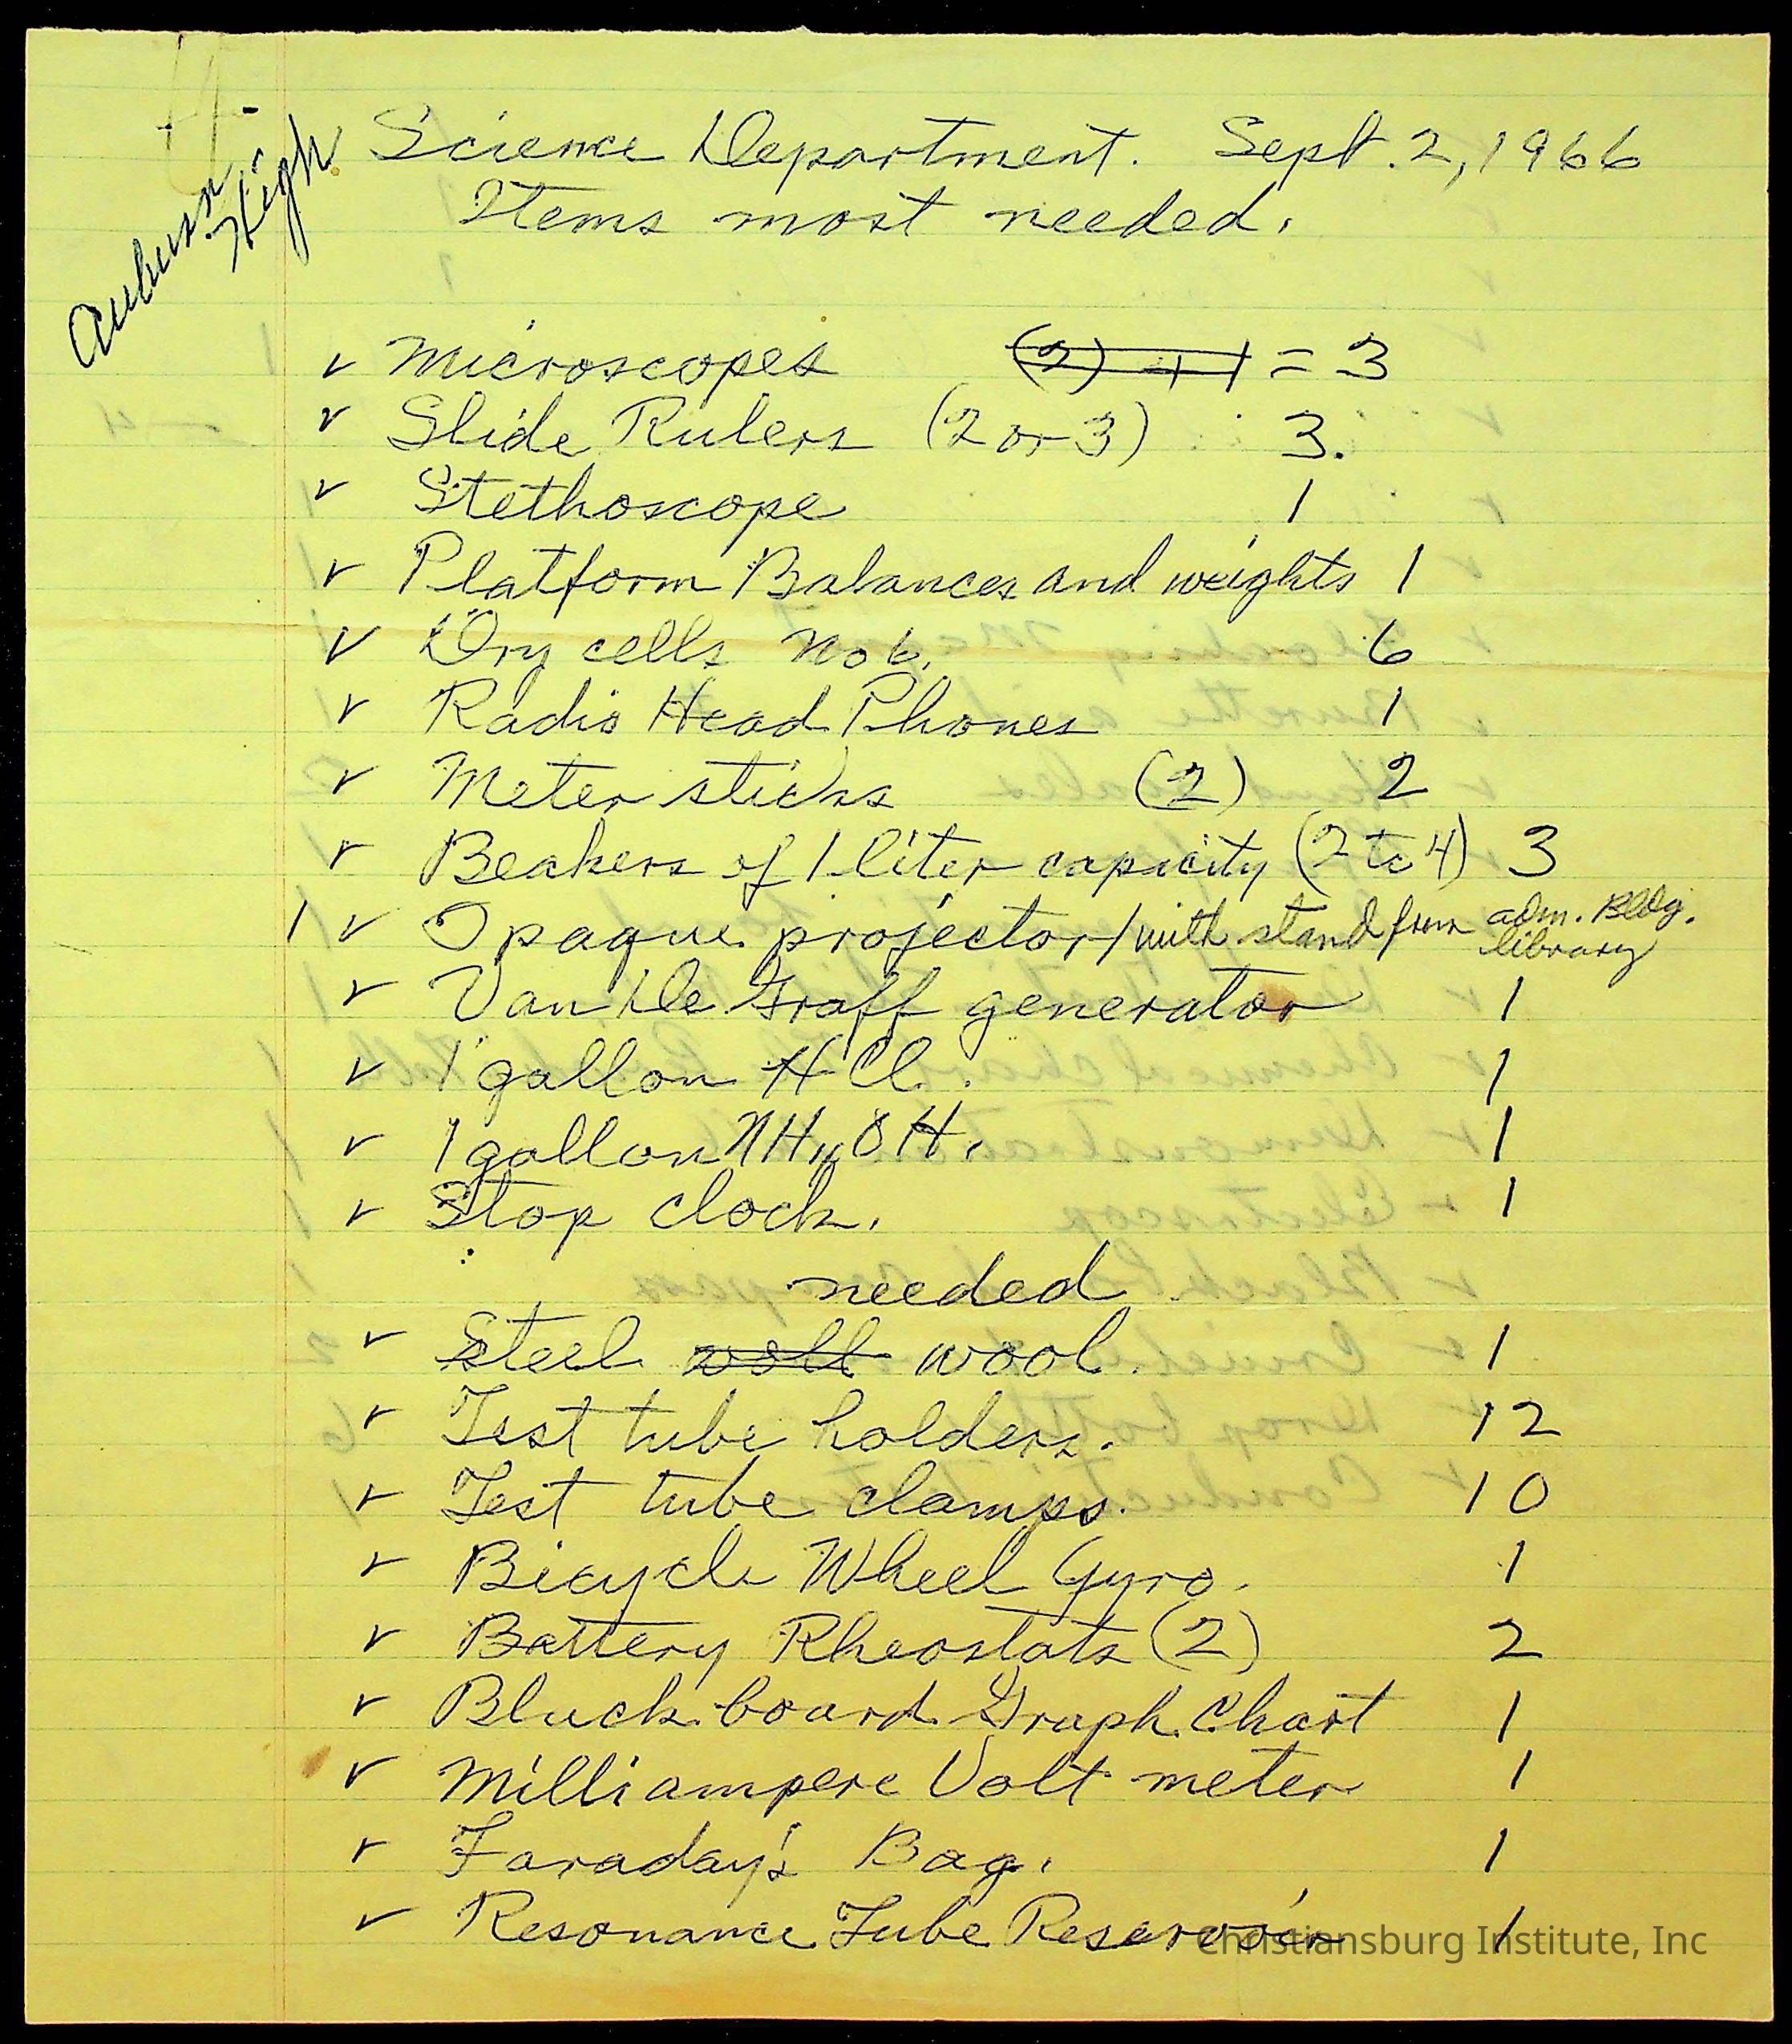 Auburn High
Science Department. Sept. 2, 1966
Items most needed.
✓ Microscopes (2) + 1 = 3
✓ Slide Rulers (2 or 3) 3.
✓ Stethoscope 1
✓ Platform Balances and weights 1
✓ Dry cells No 6. 6
✓ Radio Head Phones 1
✓ Meter sticks (2) 2
✓ Beakers of 1 liter capacity (2 to 4) 3
1 ✓ Opaque projector / with stand from adm. Bldg.
library
✓ Van De Graff generator 1
✓ 1 gallon HCl. 1
✓ 1 gallon NH4OH. 1
✓ Stop clock. 1
needed
✓ Steel woll wool. 1
✓ Test tube holders. 12
✓ Test tube clamps. 10
✓ Bicycle Wheel Gyro. 1
✓ Battery Rheostats (2) 2
✓ Black board Graph Chart 1
✓ Milliampere Volt meter 1
✓ Faraday's Bag. 1
✓ Resonance Tube Reservoir 1
Christiansburg Institute, Inc